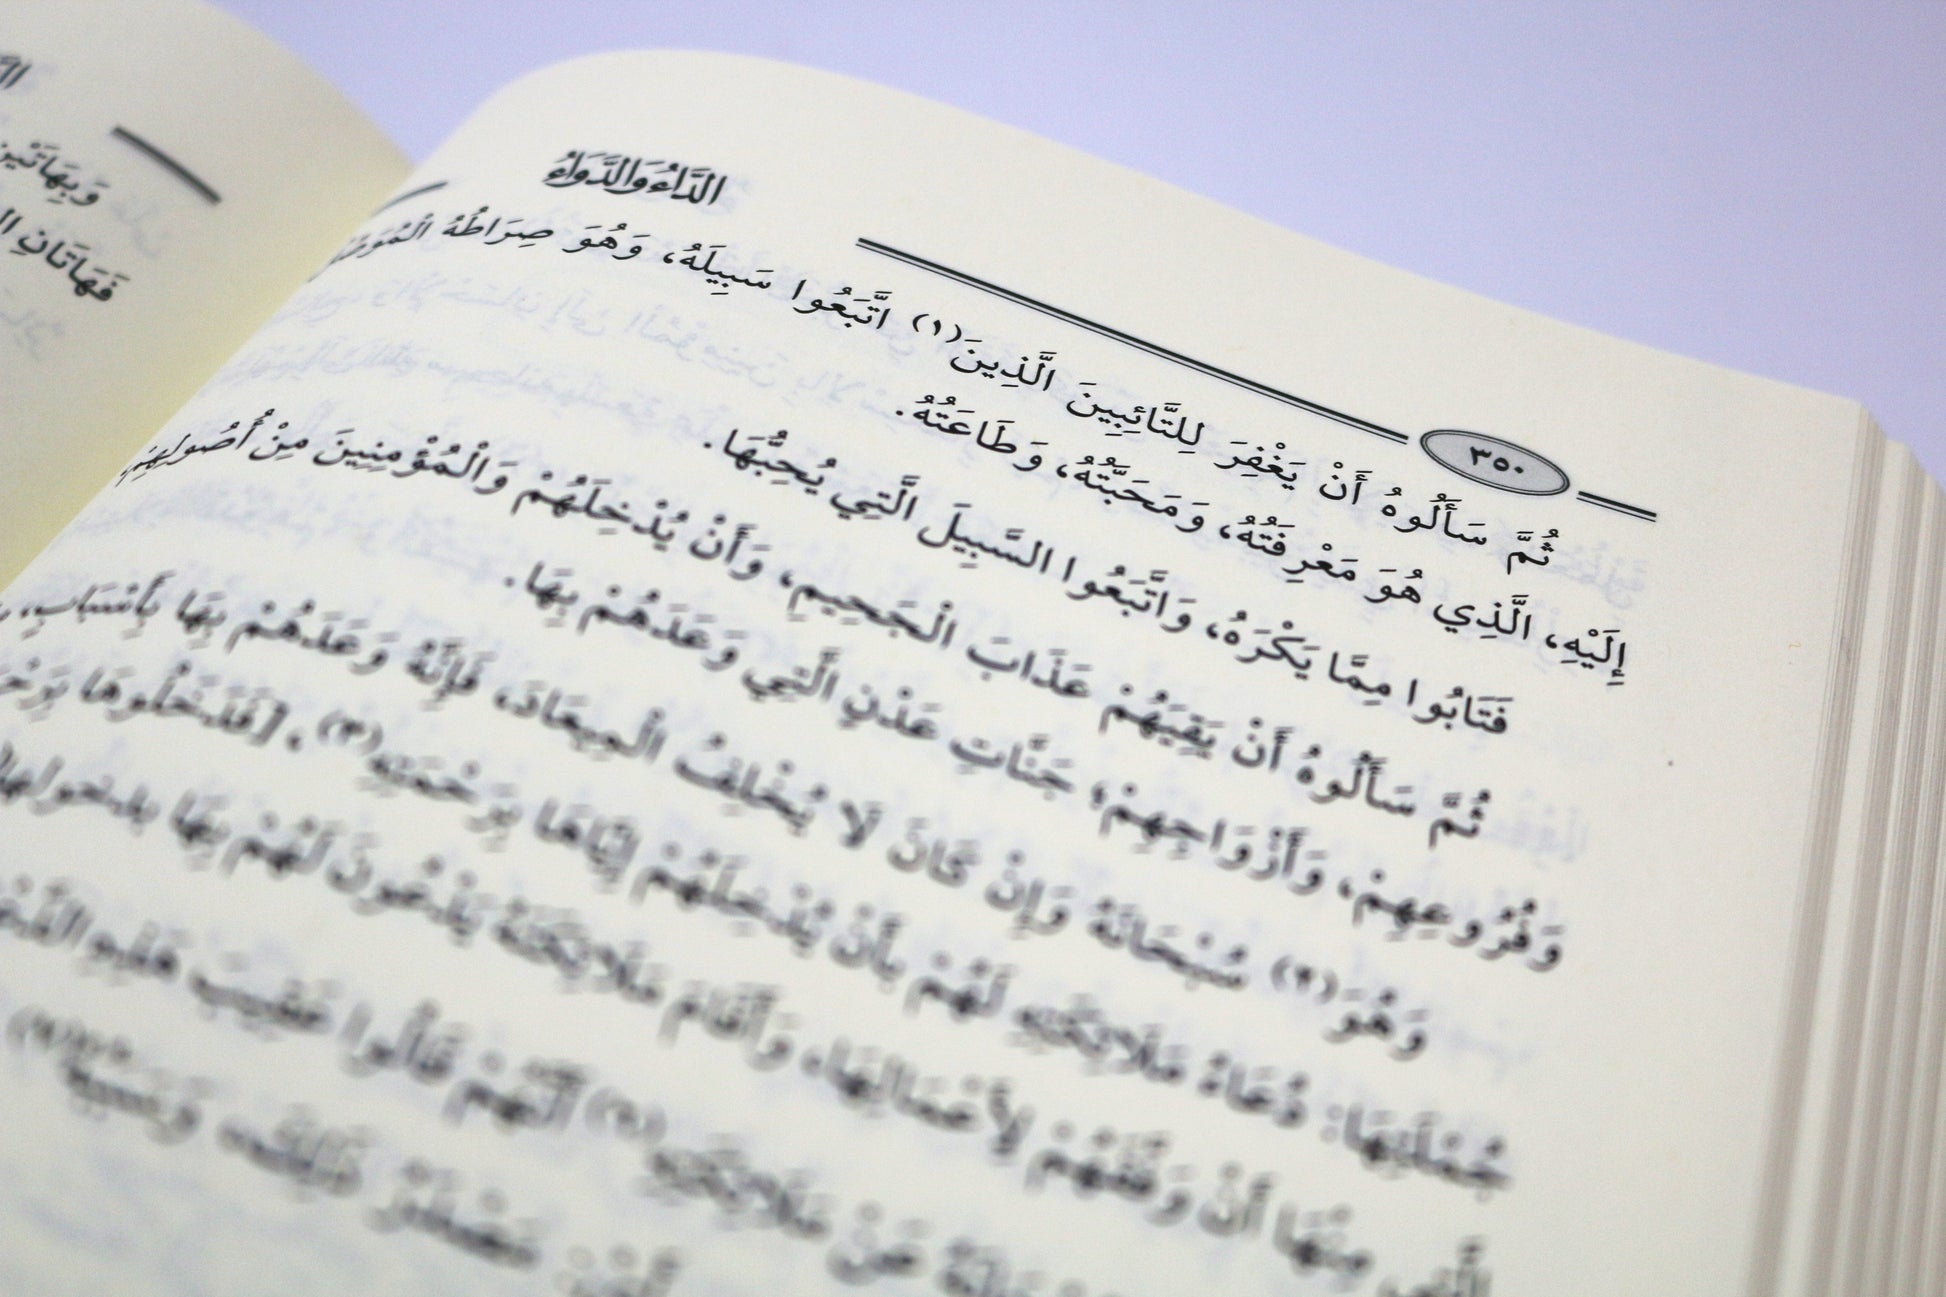 الدَّاءُ وَالدَّوَاءُ
٣٥٠
ثُمَّ سَأَلُوهُ أَنْ يَغْفِرَ لِلتَّائِبِينَ الَّذِينَ(١) اتَّبَعُوا سَبِيلَهُ، وَهُوَ صِرَاطُهُ
إِلَيْهِ، الَّذِي هُوَ مَعْرِفَتُهُ، وَمَحَبَّتُهُ، وَطَاعَتُهُ.
فَتَابُوا مِمَّا يَكْرَهُ، وَاتَّبَعُوا السَّبِيلَ الَّتِي يُحِبُّهَا.
ثُمَّ سَأَلُوهُ أَنْ يَقِيَهُمْ عَذَابَ الْجَحِيمِ، وَأَنْ يُدْخِلَهُمْ وَالْمُؤْمِنِينَ مِنْ أُصُولِهِمْ
وَفُرُوعِهِمْ، وَأَزْوَاجِهِمْ؛ جَنَّاتِ عَدْنٍ الَّتِي وَعَدَهُمْ بِهَا.
وَهُوَ(٢) سُبْحَانَهُ وَإِنْ كَانَ لَا يُخْلِفُ الْمِيعَادَ، فَإِنَّهُ وَعَدَهُمْ بِهَا بِأَسْبَابٍ،
جُمْلَتِهَا: دُعَاءُ مَلَائِكَتِهِ لَهُمْ بِأَنْ يُدْخِلَهُمْ إِيَّاهَا بِرَحْمَتِهِ(٣).
الَّتِي مِنْهَا أَنْ وَفَّقَهُمْ لِأَعْمَالِهَا، وَأَقَامَ مَلَائِكَتَهُ يَدْعُونَ لَهُمْ بِهَا
عَنْ مَلَائِكَتِهِ أَنَّهُمْ قَالُوا عَقِيبَ هَذِهِ
وَبِهَاتَيْنِ
فَهَاتَانِ